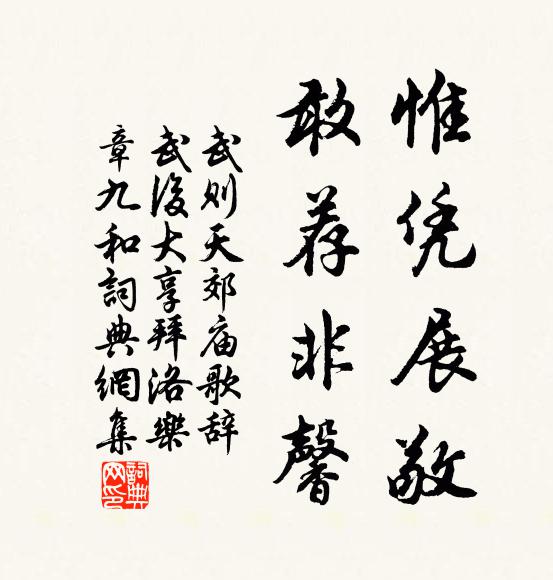 惟凭展敬
敢荐非馨
武则天郊庙歌辞
武後大享拜洛樂
章九和詞典網集
詞典网印